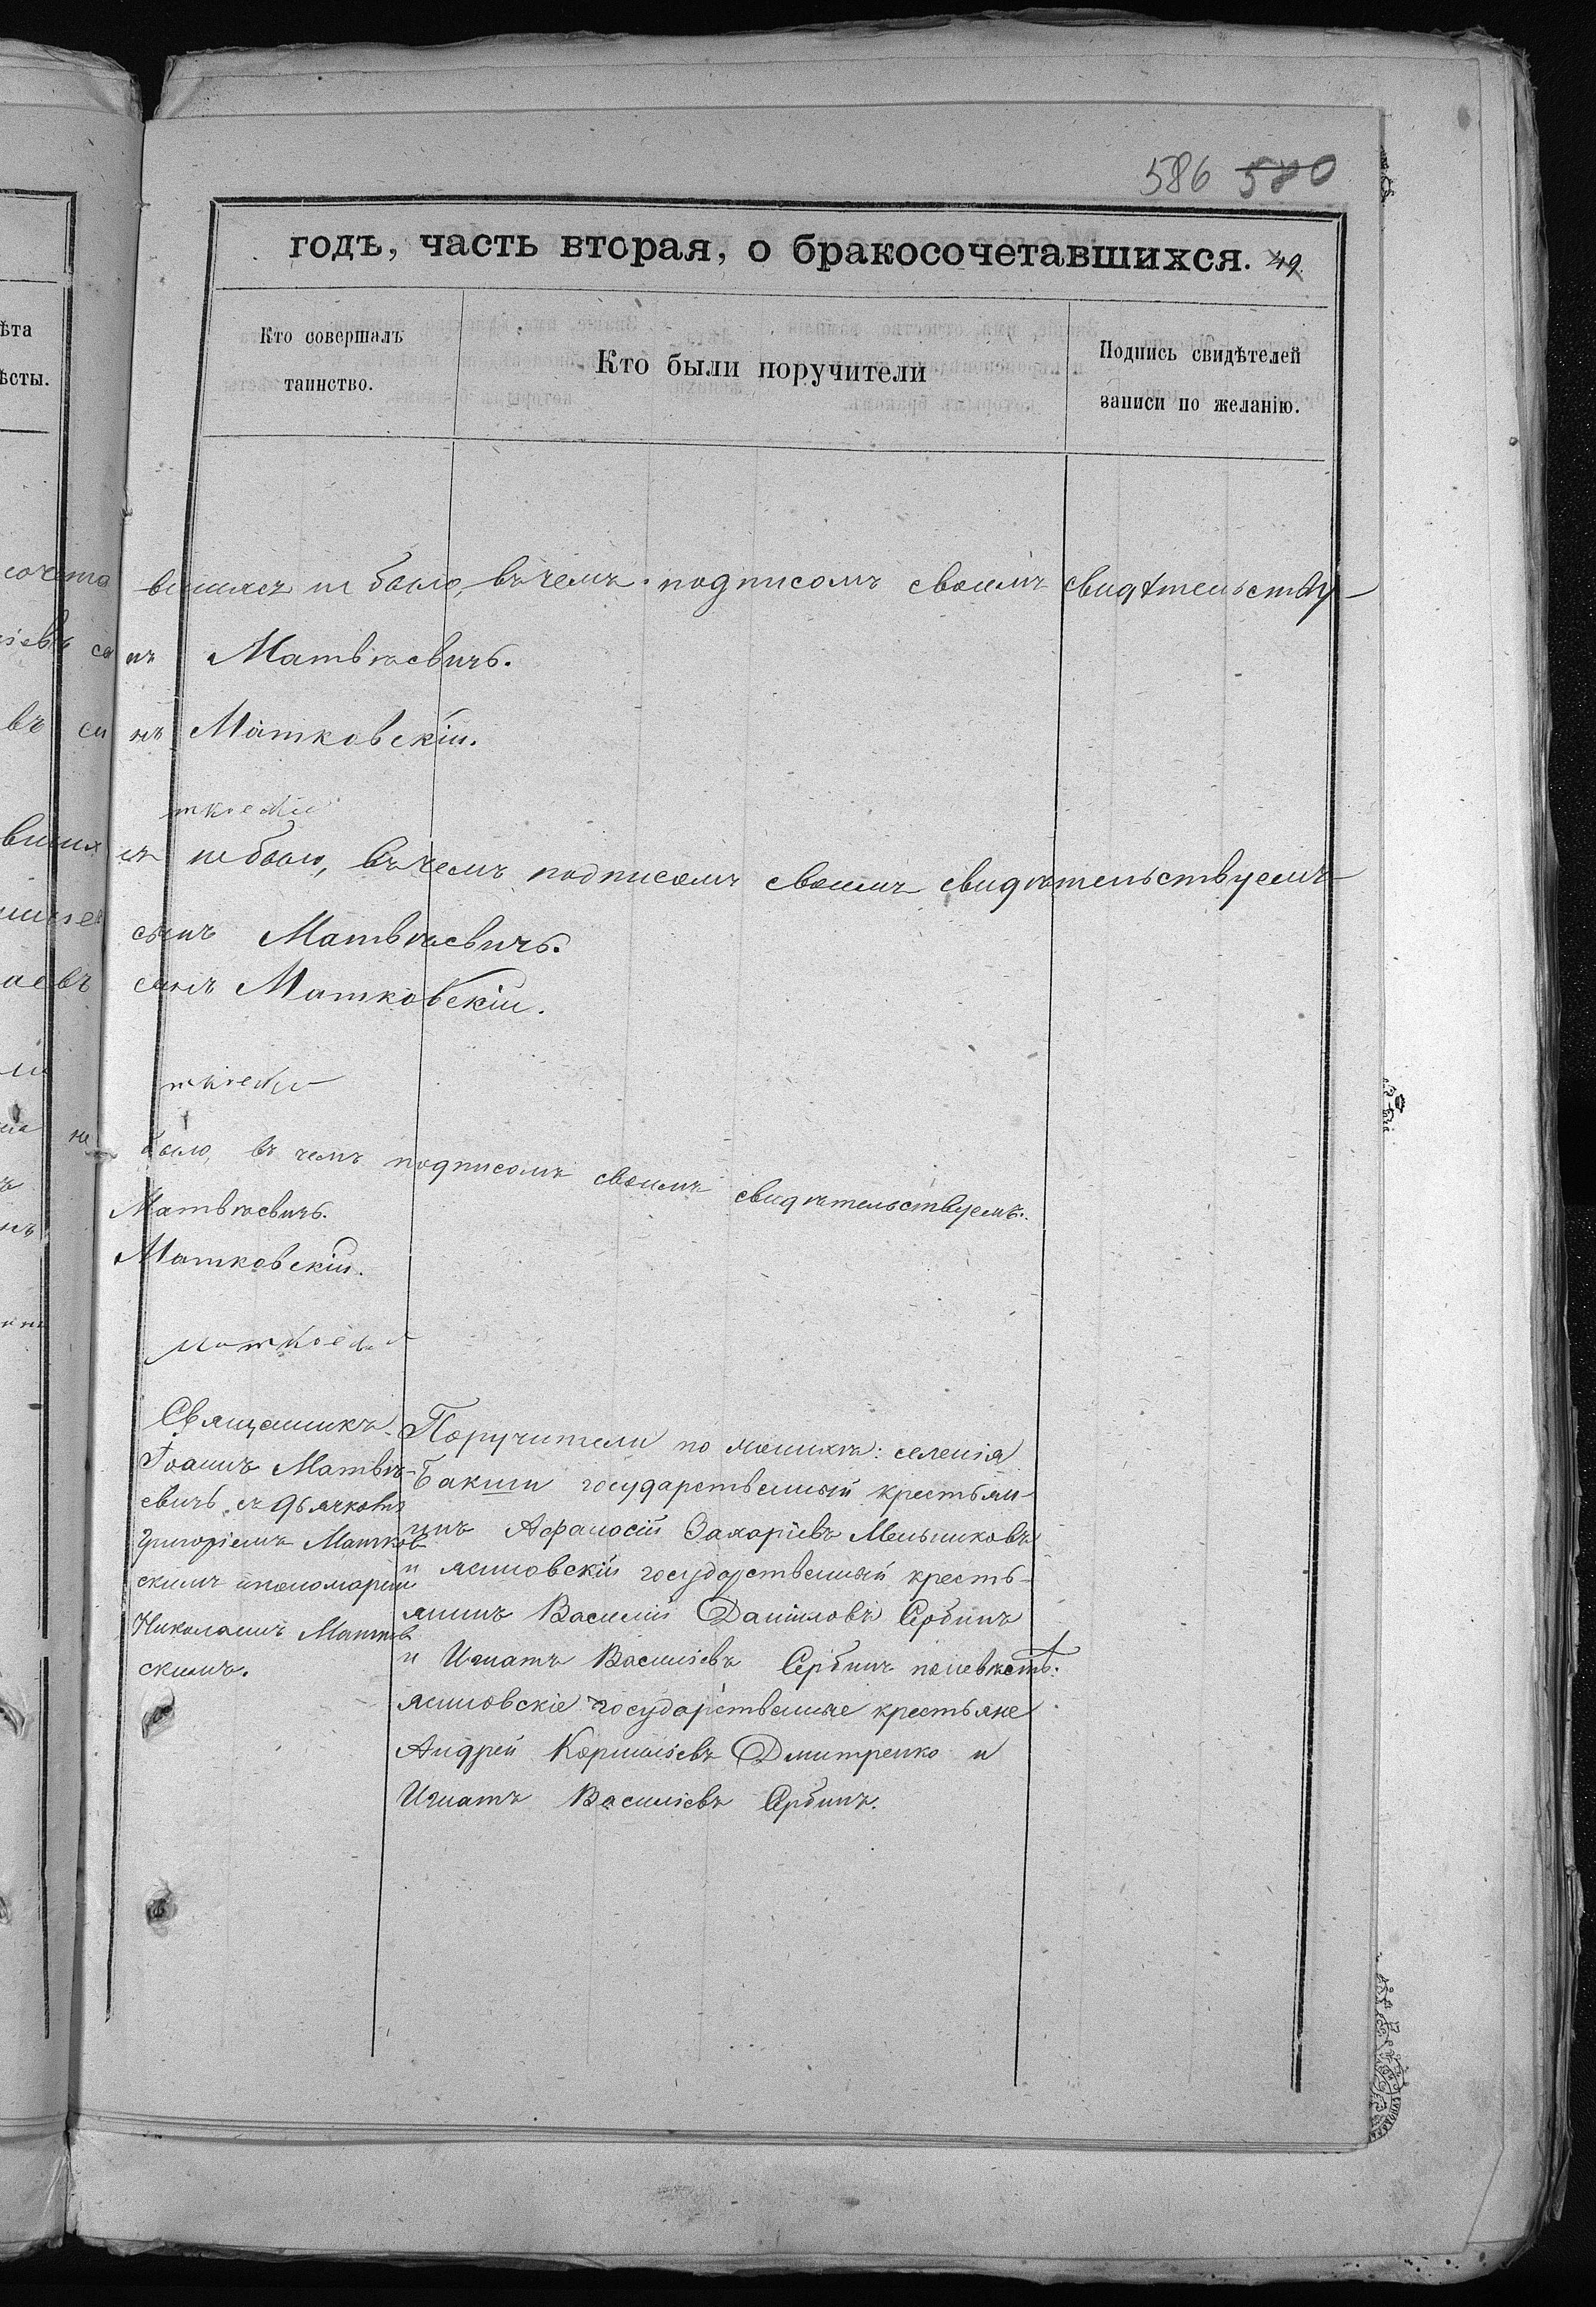 586 580
годъ, часть вторая, о бракосочетавшихся. 49.
ѣта
ѣсты.
Кто совершалъ
таинство.
Кто были поручители
Подпись свидѣтелей
записи по желанію.
сочета
вшихся не было, въ чемъ подписомъ своимъ свидѣтельству-
нъ Матвѣевичъ.
нъ Матковскій.
ся не было, въ чемъ подписомъ своимъ свидѣтельствуемъ
сынъ Матвѣевичъ.
сынъ Матковскій.
не было, въ чемъ подписомъ своимъ свидѣтельствуемъ.
Матвѣевичъ.
Матковскій.
Священникъ
Іоаннъ Матвѣ-
евичъ съ дьячкомъ
Григоріемъ Матков
скимъ и пономаремъ
Николаемъ Матков
скимъ.
Поручители по женихѣ: селенія
Бакши государственный крестьян-
инъ Афанасій Захаріевъ Мельниковъ
и ясиновскій государственный кресть-
янинъ Василій Даніиловъ Сербинъ
и Игнатъ Василіевъ Сербинъ по невѣстѣ:
ясиновскіе государственные крестьяне
Андрей Корниліевъ Дмитренко и
Игнатъ Василіевъ Сербинъ.